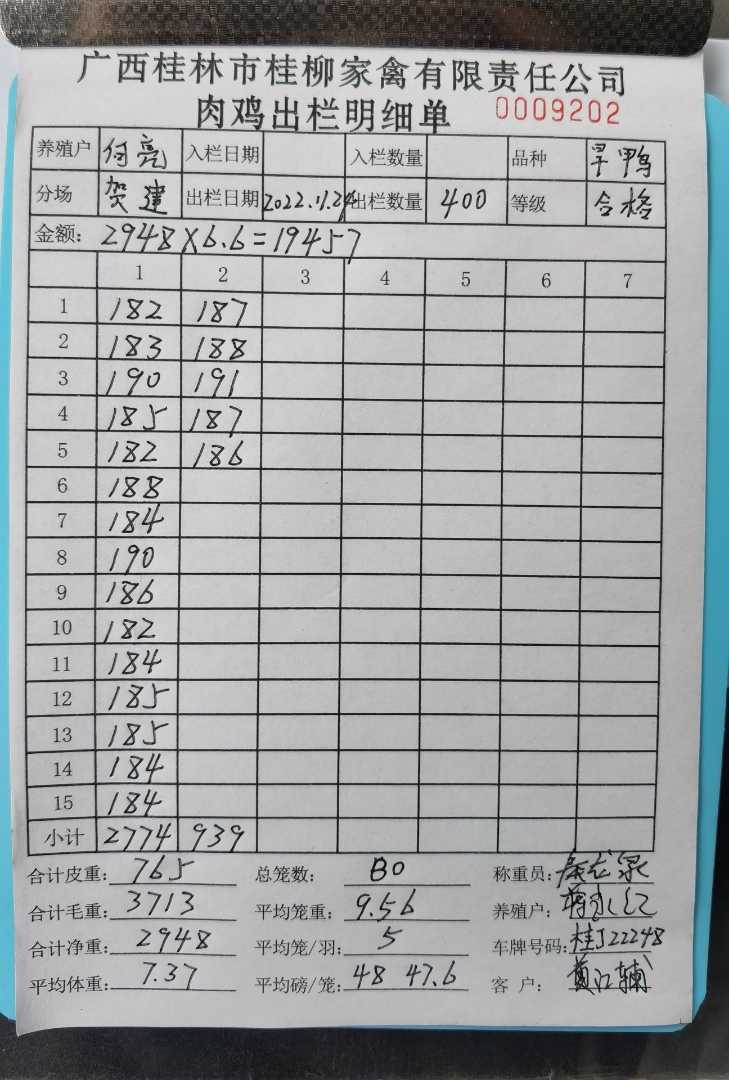 广西桂林市桂柳家禽有限责任公司
肉鸡出栏明细单 0009202
养殖户 何亮 入栏日期 入栏数量 品种 旱鸭
分场 贺建 出栏日期 2022.11.24 出栏数量 400 等级 合格
金额: 2948×6.6=19457
1 2 3 4 5 6 7
1 182 187
2 183 188
3 190 191
4 185 187
5 182 186
6 188
7 184
8 190
9 186
10 182
11 184
12 185
13 185
14 184
15 184
小计 2774 939
合计皮重: 765 总笼数: 80 称重员:
合计毛重: 3713 平均笼重: 9.56 养殖户:
合计净重: 2948 平均笼/羽: 5 车牌号码: 桂J22248
平均体重: 7.37 平均磅/笼: 48 47.6 客 户: